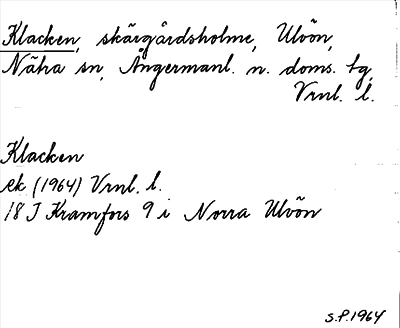 Klacken, skärgårdsholme, Ulvön,
Näha sn, Ångermanl. n. doms. tg,
Vrnl. l.
Klacken
ek (1964) Vrnl. l.
18 J Kramfors 9 i Norra Ulvön
S.P. 1964